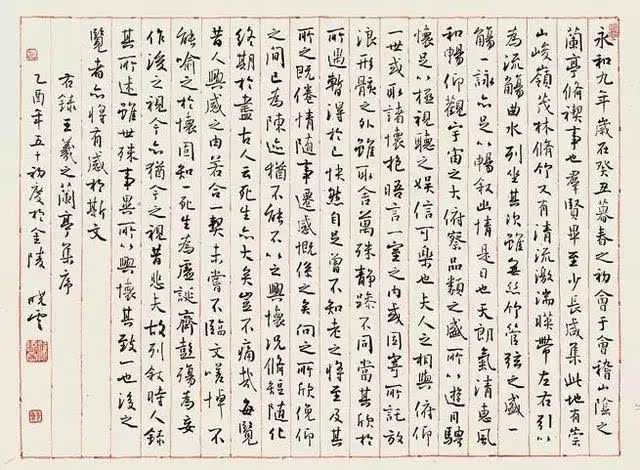 永和九年歲在癸丑暮春之初會于會稽山陰之
蘭亭脩禊事也群賢畢至少長咸集此地有崇
山峻嶺茂林脩竹又有清流激湍暎帶左右引以
為流觴曲水列坐其次雖無絲竹管弦之盛一
觴一詠亦足以暢敘幽情是日也天朗氣清惠風
和暢仰觀宇宙之大俯察品類之盛所以遊目騁
懷足以極視聽之娛信可樂也夫人之相與俯仰
一世或取諸懷抱晤言一室之内或因寄所託放
浪形骸之外雖取舍萬殊静躁不同當其欣於
所遇暫得於己快然自足曾不知老之將至及其
所之既倦情隨事遷感慨係之矣向之所欣俛仰
之間已為陳迹猶不能不以之興懷況脩短隨化
終期於盡古人云死生亦大矣豈不痛哉每覽
昔人興感之由若合一契未嘗不臨文嗟悼不
能喻之於懷固知一死生為虛誕齊彭殤為妄
作後之視今亦猶今之視昔悲夫故列敘時人錄
其所述雖世殊事異所以興懷其致一也後之
覽者亦將有感於斯文
右錄王羲之蘭亭集序
乙酉年五十初度於金陵 曉雲